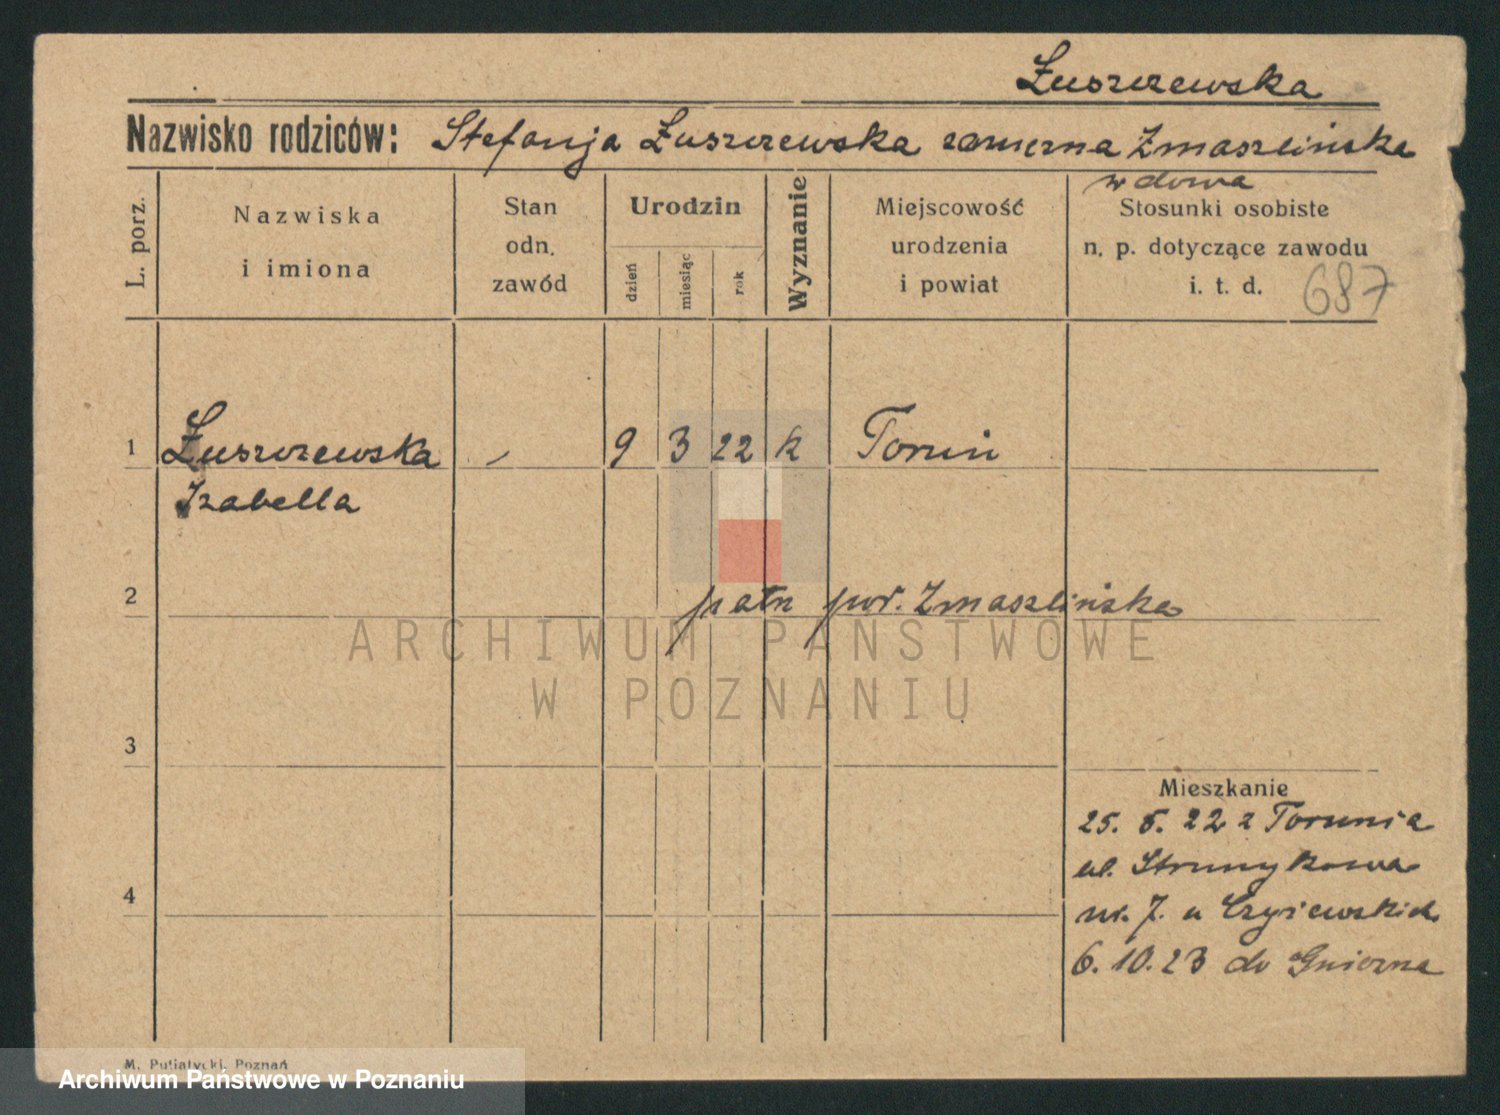 Łuszczewska
Nazwisko rodziców: Stefanja Łuszczewska zamężna Zmaszlińska
wdowa
L. porz.
Nazwiska
i imiona
Stan
odn.
zawód
Urodzin
dzień
miesiąc
rok
Wyznanie
Miejscowość
urodzenia
i powiat
Stosunki osobiste
n. p. dotyczące zawodu
i. t. d.
687
1 Łuszczewska - 9 3 22 k Toruń
Izabella
2 patrz pod. Zmaszlińska
ARCHIWUM PAŃSTWOWE
W POZNANIU
3
Mieszkanie
25. 5. 22 z Torunia
4 ul. Strumykowa
nr. 7. u
6. 10. 23 do Gniezna
M. Putiatycki, Poznań
Archiwum Państwowe w Poznaniu